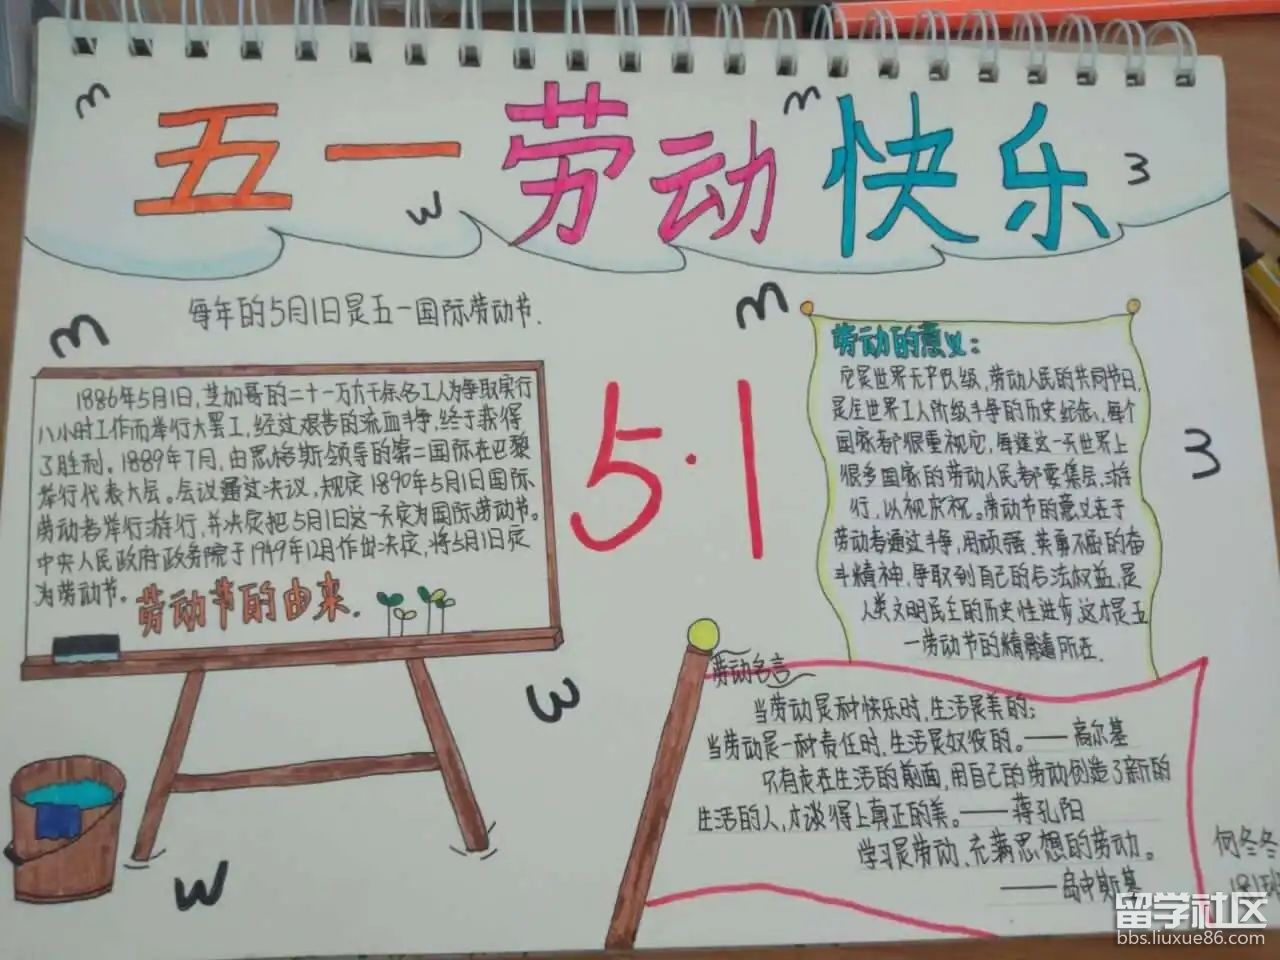 五一劳动快乐
每年的5月1日是五一国际劳动节.
1886年5月1日,芝加哥的二十一万六千余名工人为争取实行
八小时工作而举行大罢工,经过艰苦的流血斗争,终于获得
了胜利。1889年7月,由恩格斯领导的第二国际在巴黎
举行代表大会。会议通过决议,规定1890年5月1日国际
劳动者举行游行,并决定把5月1日这一天定为国际劳动节。
中央人民政府政务院于1949年12月作出决定,将5月1日定
为劳动节。
劳动节的由来.
5.1
劳动的意义:
它是世界无产阶级,劳动人民的共同节日,
是全世界工人阶级斗争的历史纪念,每个
国家都很重视它,每逢这一天世界上
很多国家的劳动人民都要集会,游
行,以视庆祝。劳动节的意义在于
劳动者通过斗争,用顽强、英勇不屈的奋
斗精神,争取到自己的合法权益,是
人类文明民主的历史性进步,这才是五
一劳动节的精髓所在.
劳动名言
当劳动是种快乐时,生活是美的;
当劳动是一种责任时,生活是奴役的。——高尔基
只有走在生活的前面,用自己的劳动创造了新的
生活的人,才谈得上真正的美。——蒋孔阳
学习是劳动、充满思想的劳动。
——乌申斯基
何冬冬
181班
留学社区
bbs.liuxue86.com